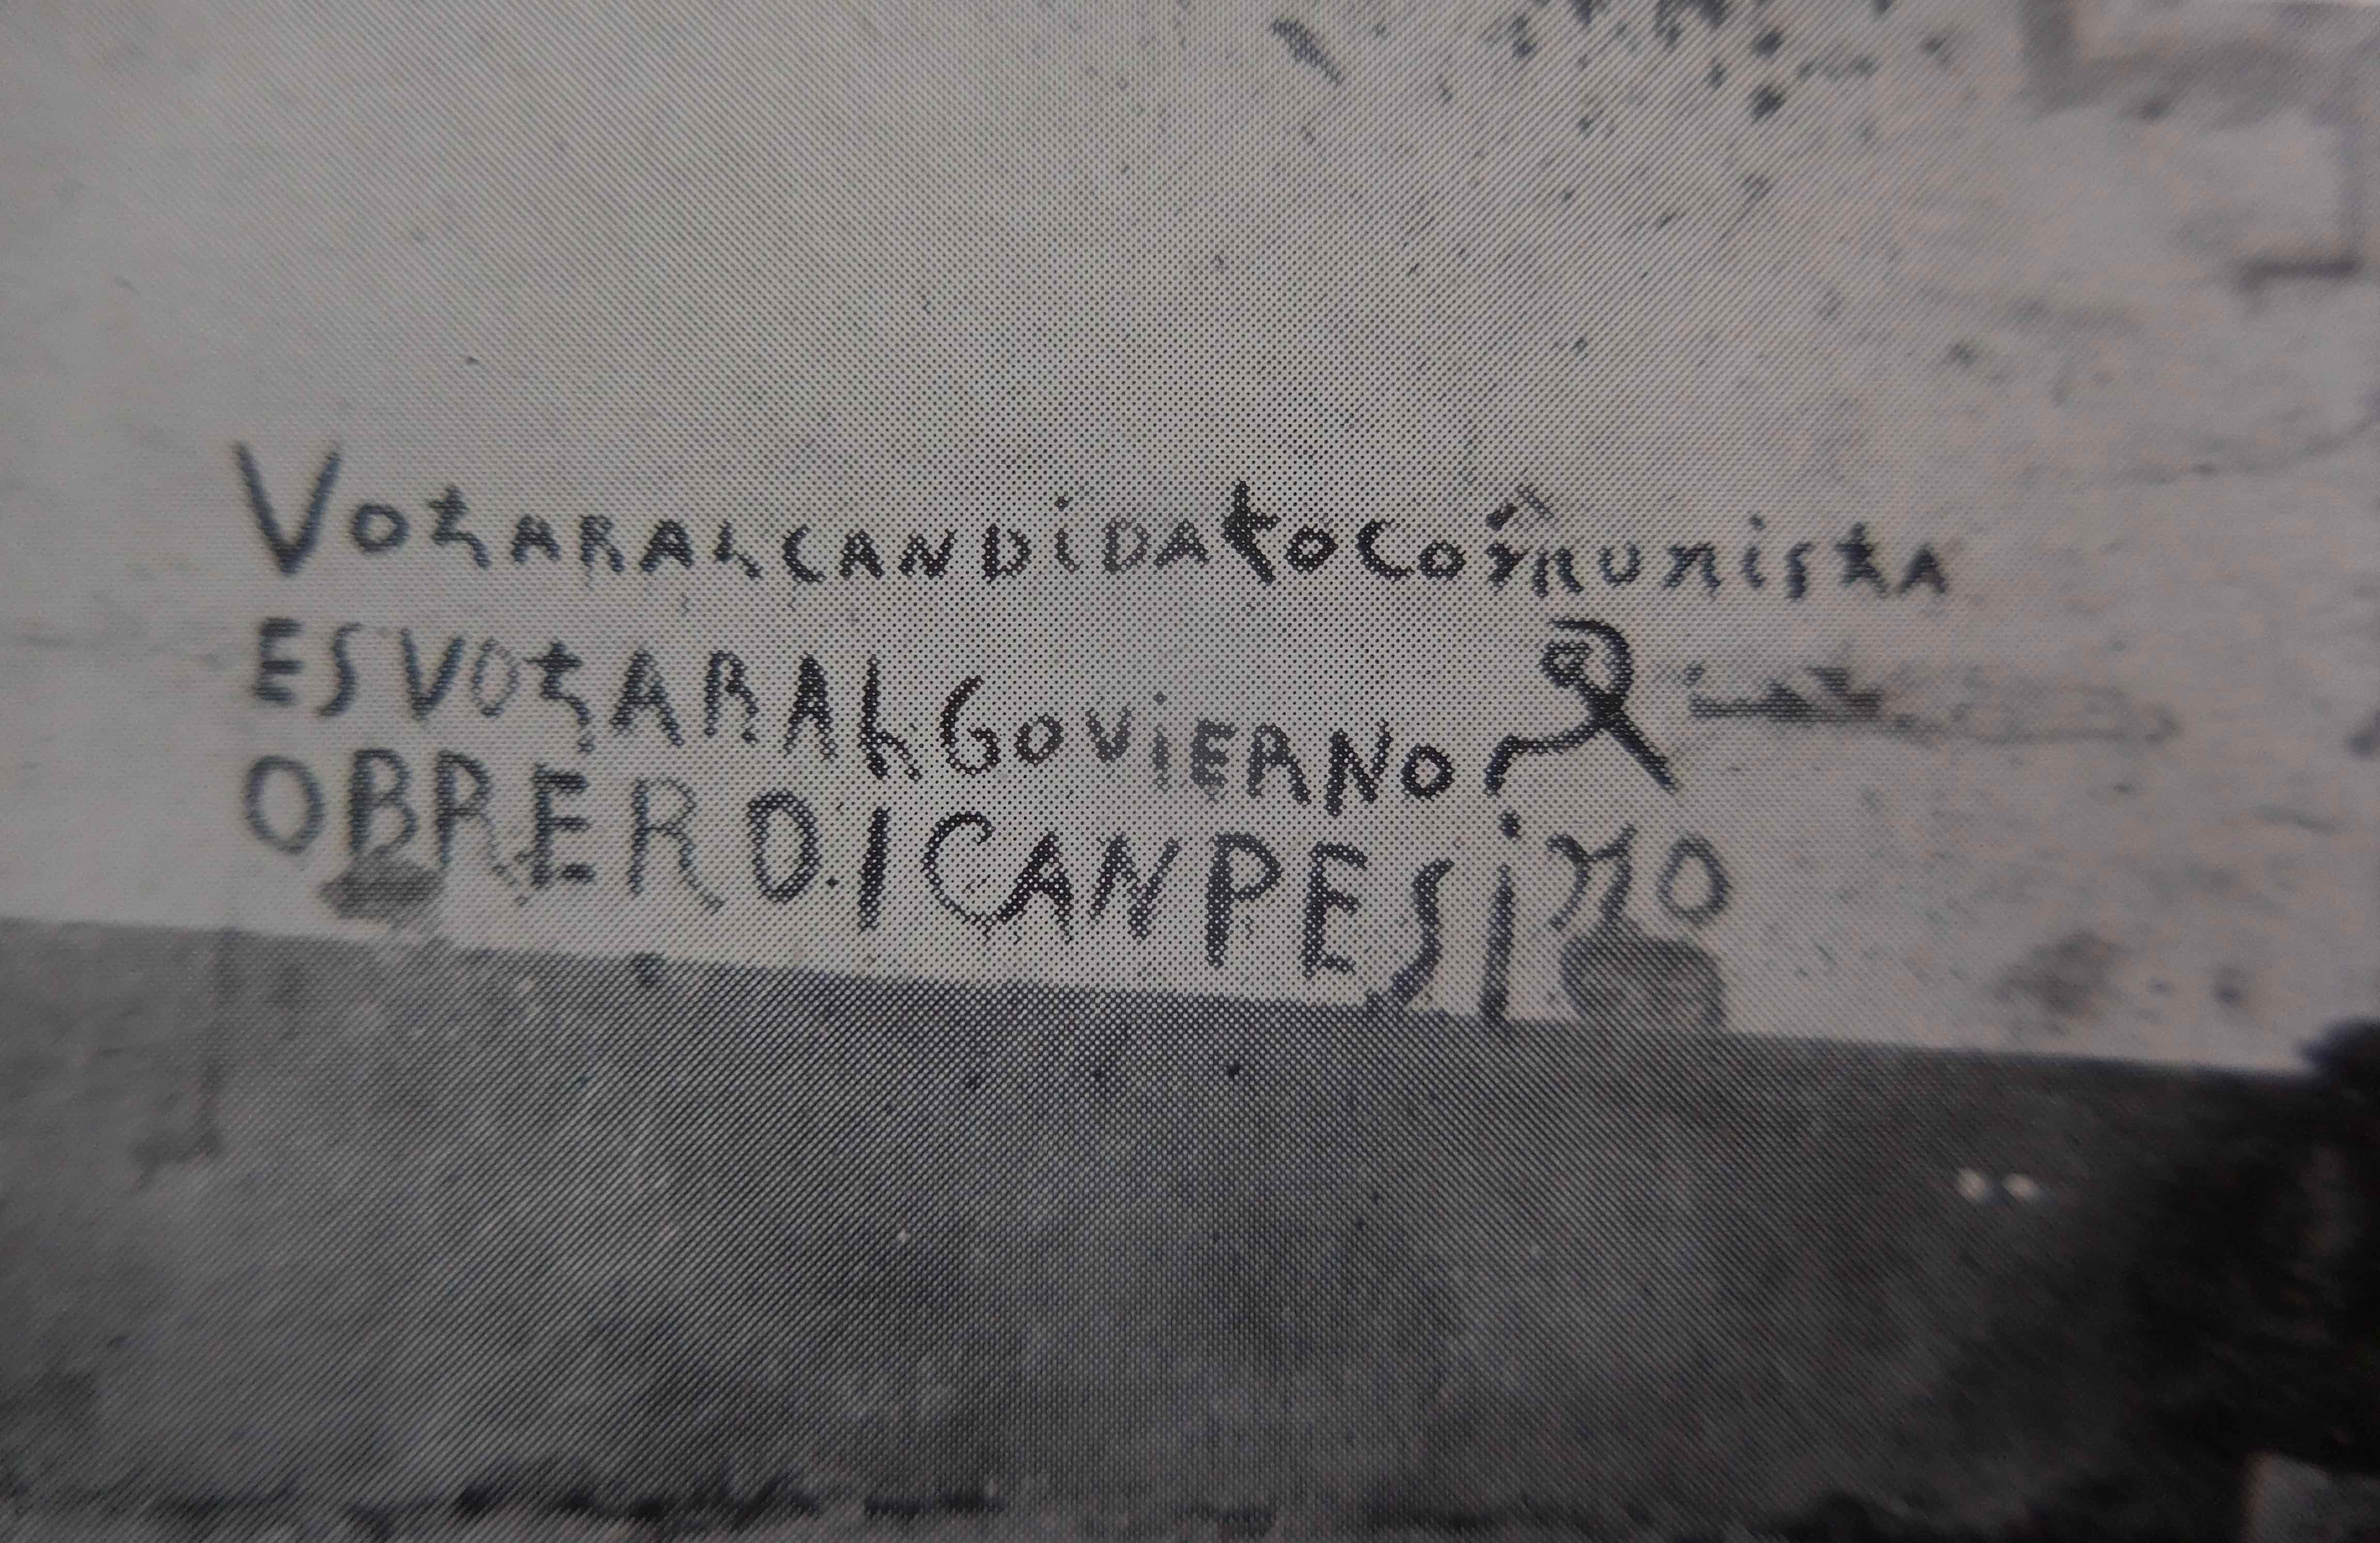 VotARAL CANDiDAtO Comunista
ES VOtARAL GOViERNO
OBRERO.I CANPESiNO